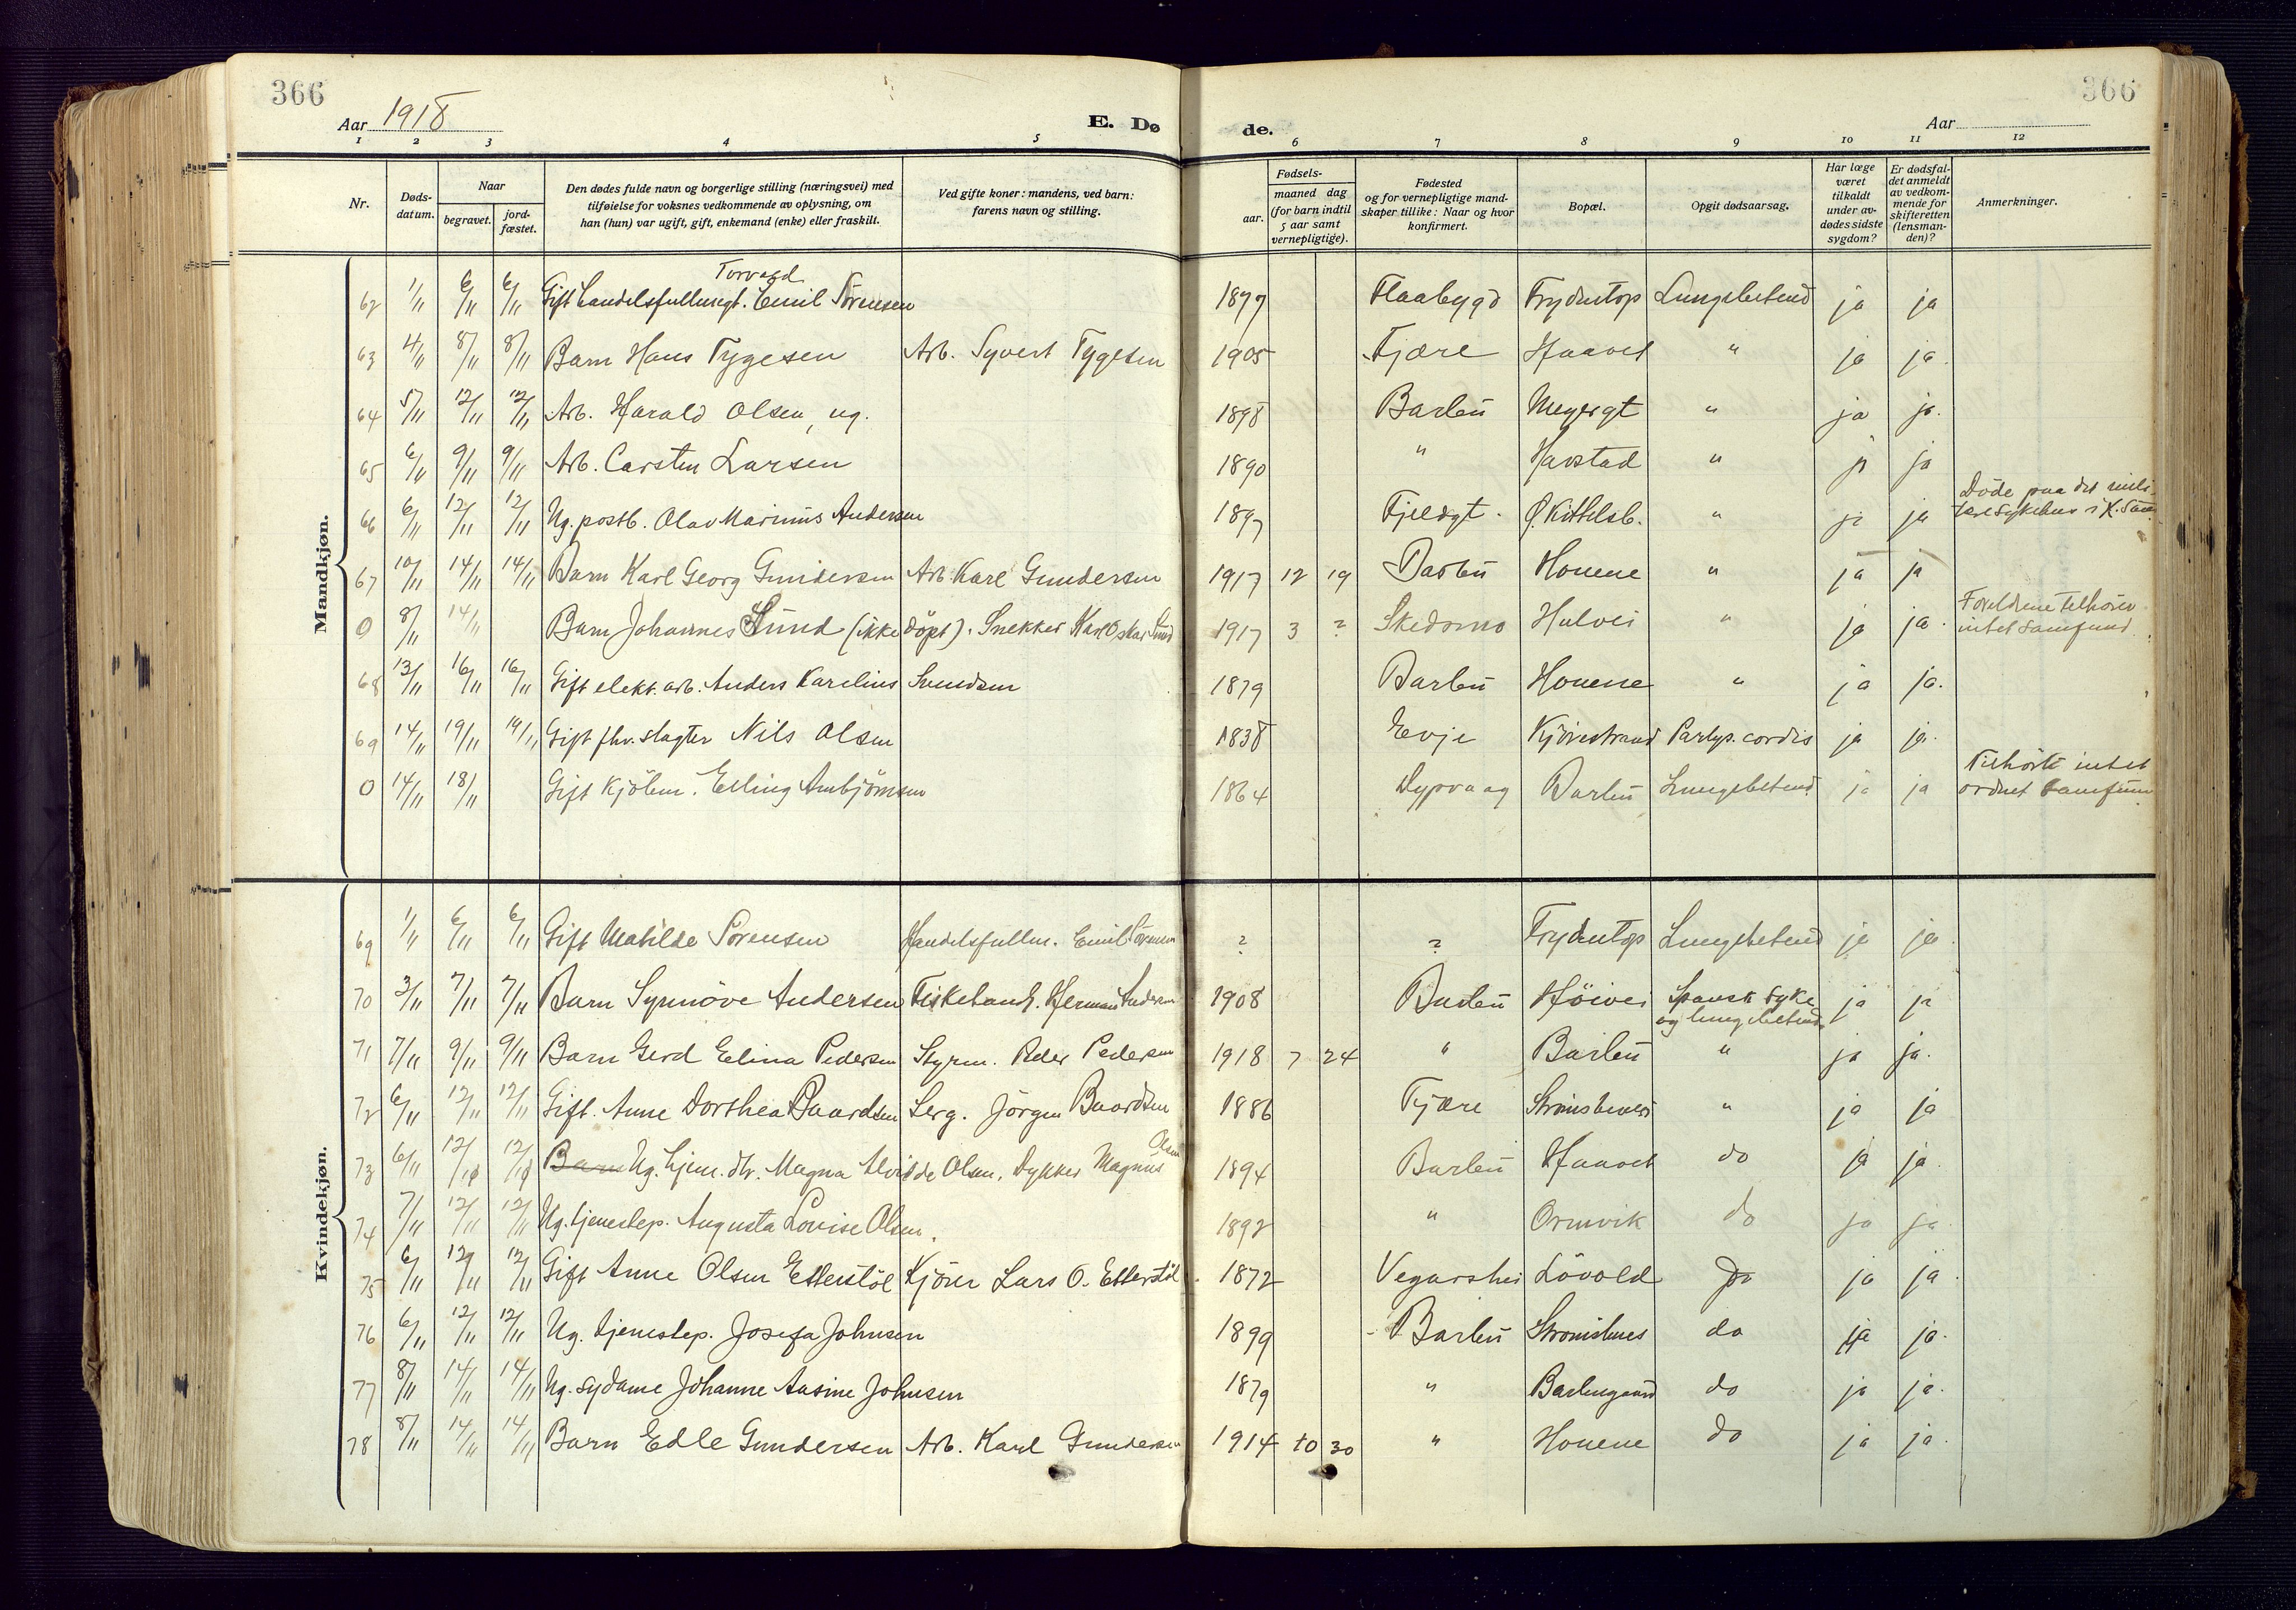 366
366
Aar 1918
E. Dø
de.
Aar
1 2 3 4 5 6 7 8 9 10 11 12
Nr.
Døds-
datum.
Naar
begravet.
jord-
fæstet.
Den dødes fulde navn og borgerlige stilling (næringsvei) med
tilføielse for voksnes vedkommende av oplysning, om
han (hun) var ugift, gift, enkemand (enke) eller fraskilt.
Ved gifte koner: mandens, ved barn:
farens navn og stilling.
Fødsels-
aar.
maaned dag
(for barn indtil
5 aar samt
vernepligtige).
Fødested
og for vernepligtige mand-
skaper tillike: Naar og hvor
konfirmert.
Bopæl.
Opgit dødsaarsag.
Har læge
været
tilkaldt
under av-
dødes sidste
sygdom?
Er dødsfal-
det anmeldt
av vedkom-
mende for
skifteretten
(lensman-
den)?
Anmerkninger.
Mandkjøn.
Torvald
62 1/11 6/11 6/11 Gift handelsfullmegt. Emil Sörensen 1877 Flaabygd Frydentop Lungebetend ja ja
63 4/11 8/11 8/11 Barn Hans Tygesen Arb. Syvert Tygesen 1905 Fjære Haavet " ja ja.
64 5/11 12/11 12/11 Arb. Harald Olsen, ug. 1898 Barbu Meyergt " ja ja.
65 6/11 9/11 9/11 Arb. Carsten Larsen 1890 " Havstad " ja ja
66 6/11 12/11 12/11 Ug. postb. Olav Marinius Andersen 1897 Fjeldgt. Ø. Kittelsb. " ja ja Döde paa det mili-
tære sykehus i K. San
67 10/11 14/11 14/11 Barn Karl Georg Gundersen Arb. Karl Gundersen 1917 12 19 Barbu Houene " ja ja
0 8/11 14/11 Barn Johannes Sund (ikke döpt). Snekker Karl Oskar Sund 1917 3 ? Skedsmo Hulvei " ja ja. Foreldrene tilhörer
intet samfund.
68 13/11 16/11 16/11 Gift elekt. arb. Anders Karelius Svendsen 1879 Barbu Houene " ja ja.
69 14/11 19/11 19/11 Gift fhv. slagter Nils Olsen 1838 Evje Kjörrestrand Parlys. cordis ja ja.
0 14/11 18/11 Gift kjölm. Elling Ambjörnsen 1864 Dypvaag Barbu Lungebetend ja ja Tilhörte intet
ordnet samfund
Kvindekjøn.
69 1/11 6/11 6/11 Gift Matilde Sörensen Handelsfullm. Emil Sörensen ? ? Frydentop Lungebetend ja ja.
70 3/11 7/11 7/11 Barn Synnöve Andersen Fiskehandl. Herman Andersen 1908 Barbu Höivei Spansk syke
og lungebetend ja ja
71 7/11 9/11 9/11 Barn Gerd Elina Pedersen Styrm. Peder Pedersen 1918 7 24 " Barbu " ja ja.
72 6/11 12/11 12/11 Gift. Anne Dorthea Baardsen Serg. Jörgen Baardsen 1886 Fjære " ja ja
73 6/11 12/11 12/11 Barn Ug. hjem. dtr. Magna Alvilde Olsen, Dykker Magnus Olsen 1894 Barbu Haavet do ja ja.
74 7/11 12/11 12/11 Ug. tjenestep. Augusta Lovise Olsen. 1892 " Ormvik do ja ja.
75 6/11 12/11 12/11 Gift Anne Olsen Etterstöl Kjörer Lars O. Etterstöl. 1872 Vegarshei Lövold do ja ja.
76 6/11 12/11 12/11 Ug. tjenestep. Josefa Johnsen 1899 Barbu Strömsbues do ja ja.
77 8/11 14/11 14/11 Ug. sydame Johanne Aasine Johnsen 1879 " Barbugaard do ja ja.
78 8/11 14/11 14/11 Barn Edle Gundersen Arb. Karl Gundersen 1914 10 30 " Houene do ja ja.